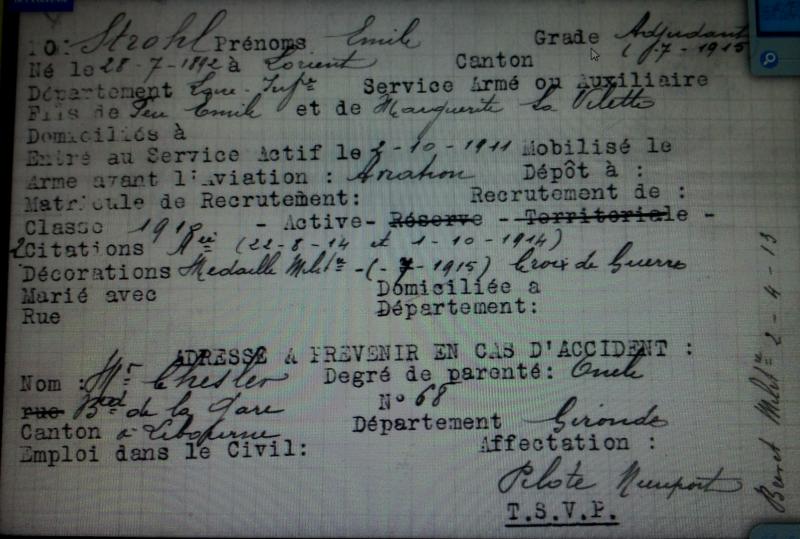 NOM: Strohl Prénoms Emile Grade Adjudant
( 7 - 1915
Né le 28 - 7 - 1892 à Lorient Canton
Département Loire-Infre Service Armé ou Auxiliaire
Fils de feu Emile et de Marguerite La Vilette
Domiciliés à
Entré au Service Actif le 2 - 10 - 1911 Mobilisé le
Arme avant l'Aviation : Aviation Dépôt à :
Matricule de Recrutement: Recrutement de :
Classe 1912 - Active- Réserve - Territoriale -
2 Citations Mée (22-8-14 et 1-10-1914)
Décorations Medaille Militre -(- 7 - 1915) Croix de Guerre
Marié avec Domiciliée a
Rue Département:
ADRESSE A PREVENIR EN CAS D'ACCIDENT :
Nom : Mr Chesler Degré de parenté: Oncle
rue Bard de la Gare N° 68
Canton à Libourne Département Gironde
Emploi dans le Civil: Affectation :
Pilote Nieuport
T.S.V.P.
Brevet Militre 2 - 4 - 13